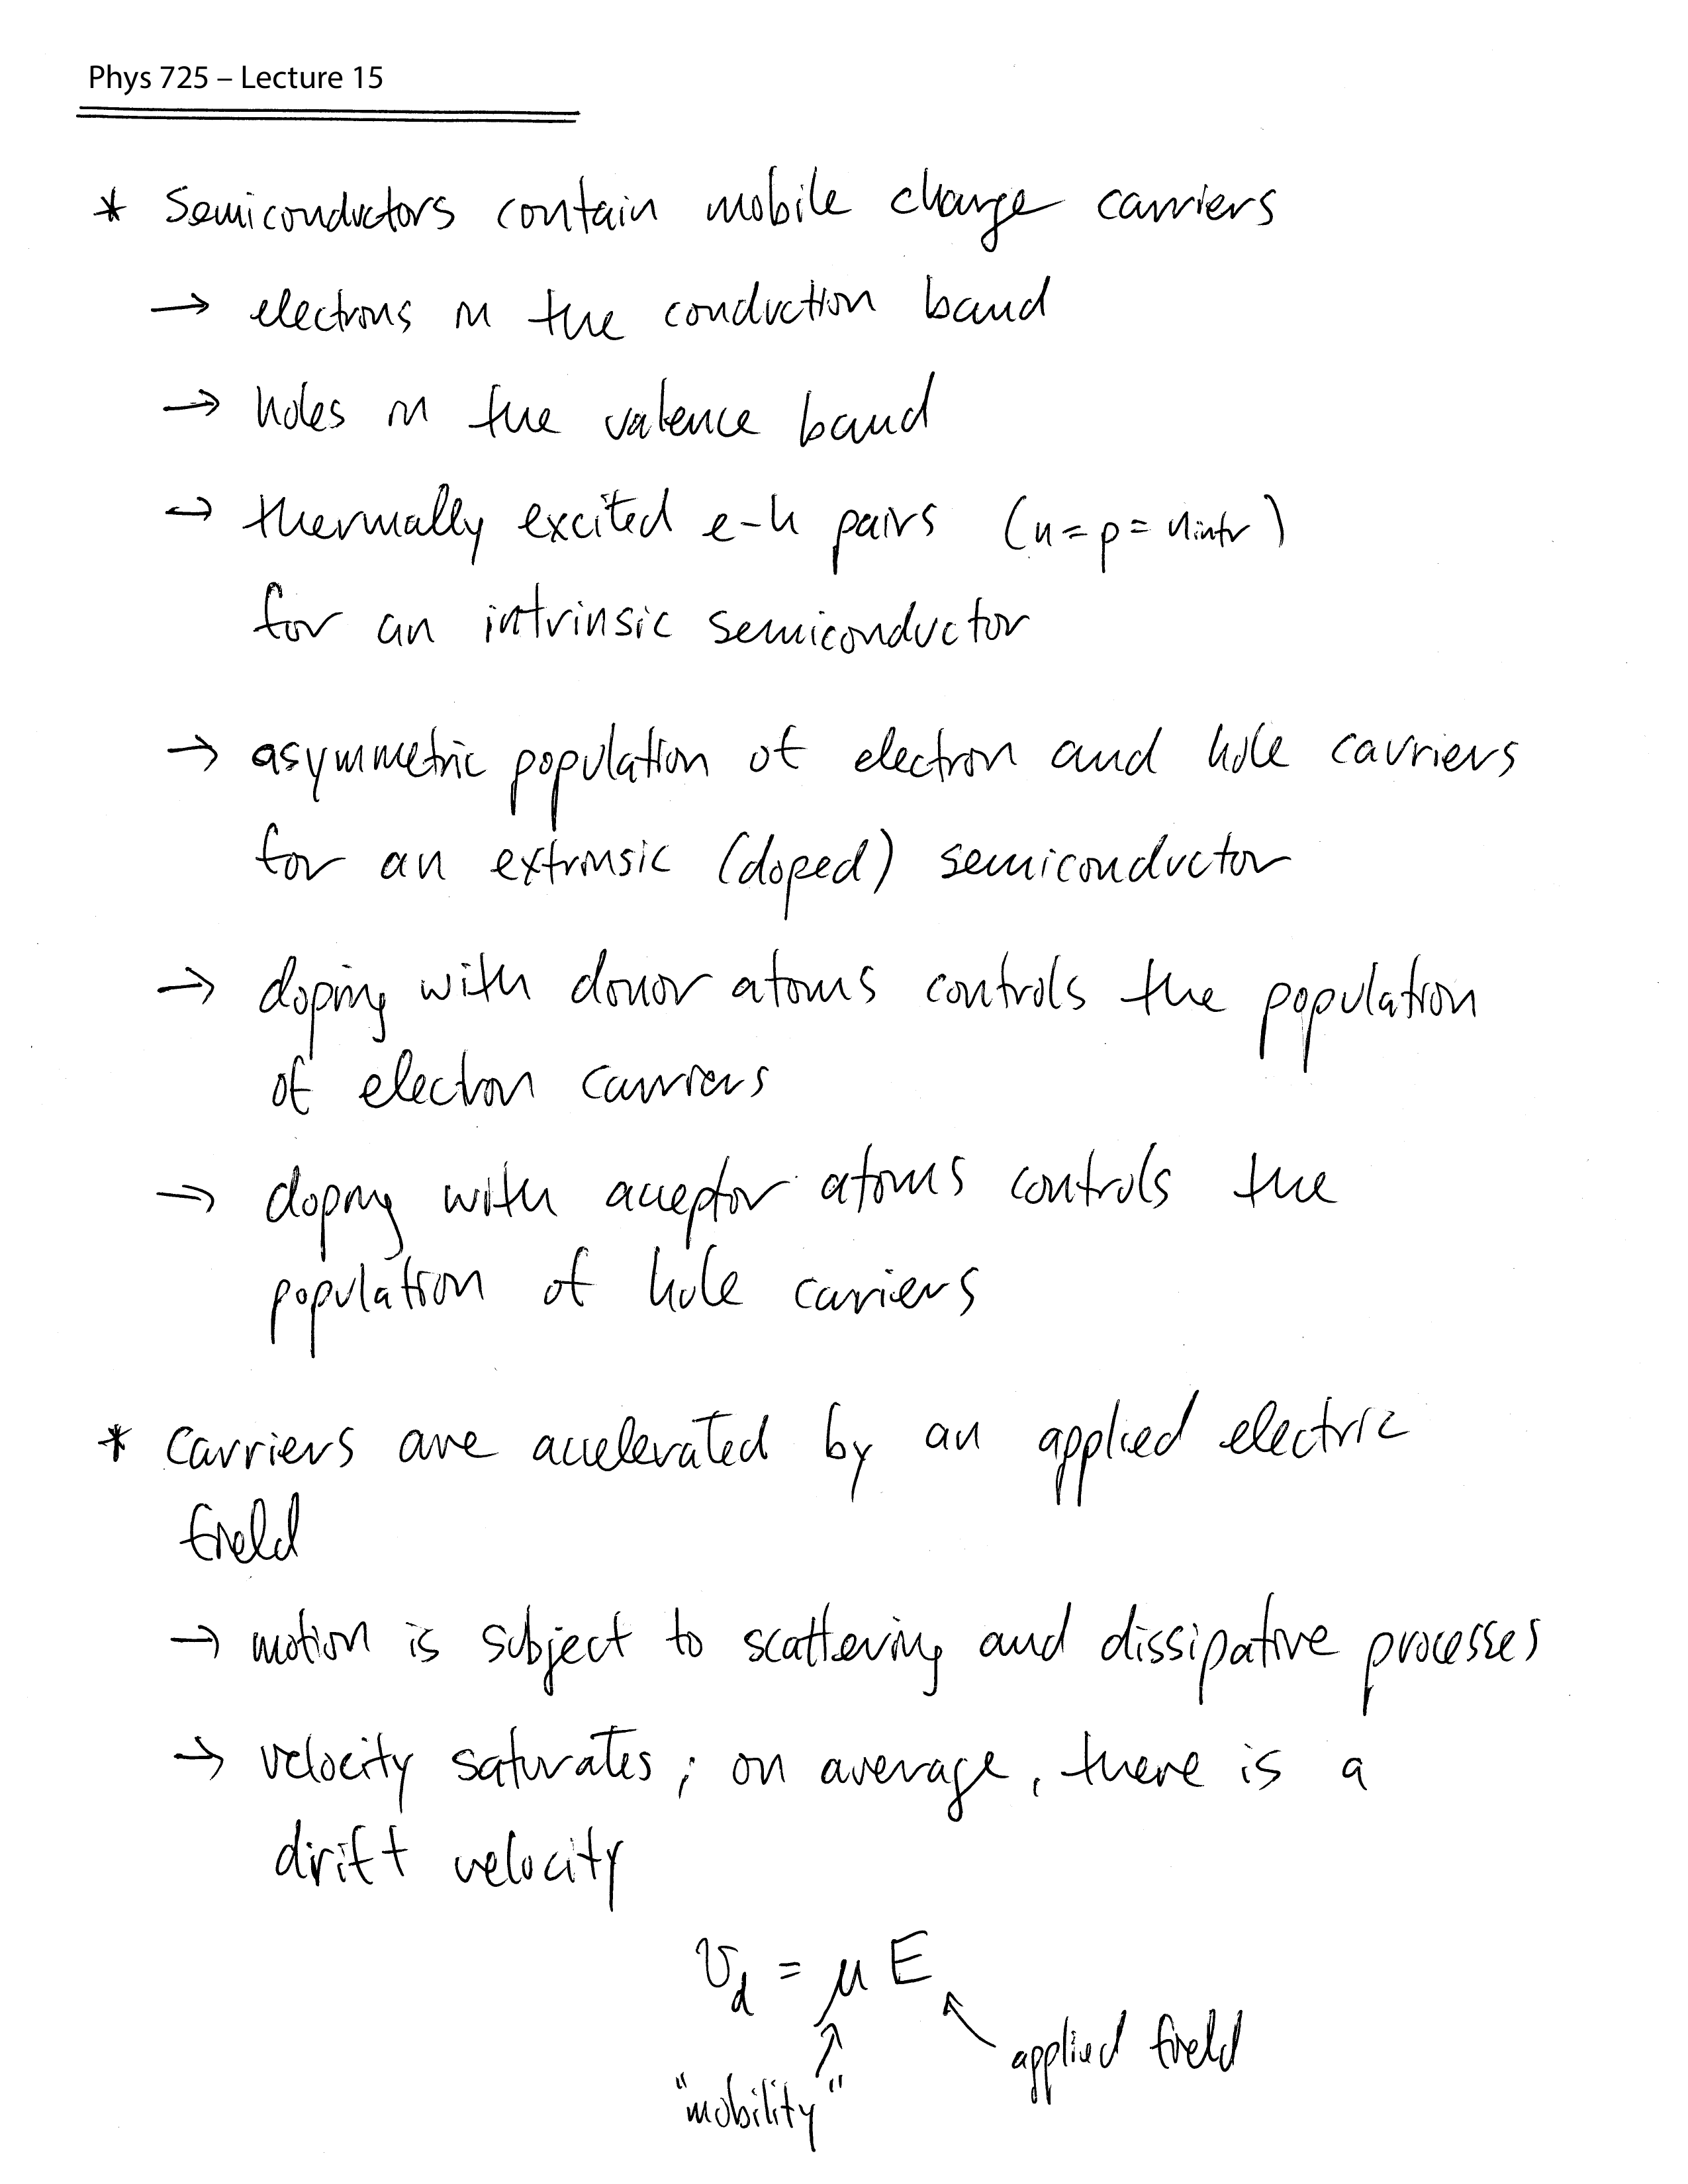 Phys 725 – Lecture 15
* Semiconductors contain mobile charge carriers
→ electrons in the conduction band
→ holes in the valence band
→ thermally excited e-h pairs (n = p = nintr)
for an intrinsic semiconductor
→ asymmetric population of electron and hole carriers
for an extrinsic (doped) semiconductor
→ doping with donor atoms controls the population
of electron carriers
→ doping with acceptor atoms controls the
population of hole carriers
* Carriers are accelerated by an applied electric
field
→ motion is subject to scattering and dissipative processes
→ velocity saturates; on average, there is a
drift velocity
v_d = μ E
applied field
"mobility"